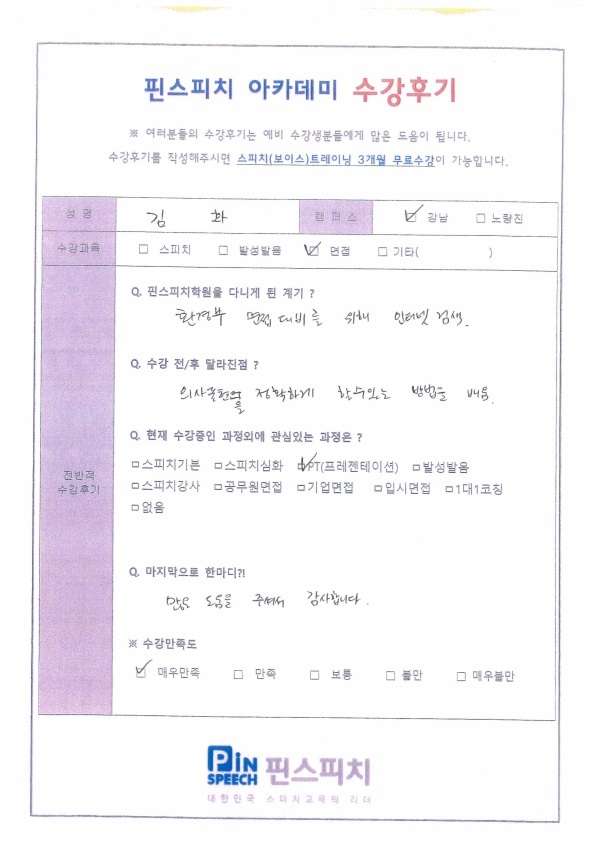 핀스피치 아카데미 수강후기
※ 여러분들의 수강후기는 예비 수강생분들에게 많은 도움이 됩니다.
수강후기를 작성해주시면 스피치(보이스)트레이닝 3개월 무료수강이 가능합니다.
성 명 김 화 캠 퍼 스 ☑ 강남 □ 노량진
수강과목 □ 스피치 □ 발성발음 ☑ 면접 □ 기타( )
Q. 핀스피치학원을 다니게 된 계기 ?
환경부 면접 대비를 위해 인터넷 검색.
Q. 수강 전/후 달라진점 ?
의사표현을 정확하게 할수있는 방법을 배움.
Q. 현재 수강중인 과정외에 관심있는 과정은 ?
□스피치기본 □스피치심화 ☑PT(프레젠테이션) □발성발음
전반적
수강후기
□스피치강사 □공무원면접 □기업면접 □입시면접 □1대1코칭
□없음
Q. 마지막으로 한마디?!
많은 도움을 주셔서 감사합니다.
※ 수강만족도
☑ 매우만족 □ 만족 □ 보통 □ 불만 □ 매우불만
PiN SPEECH 핀스피치
대한민국 스피치교육의 리더